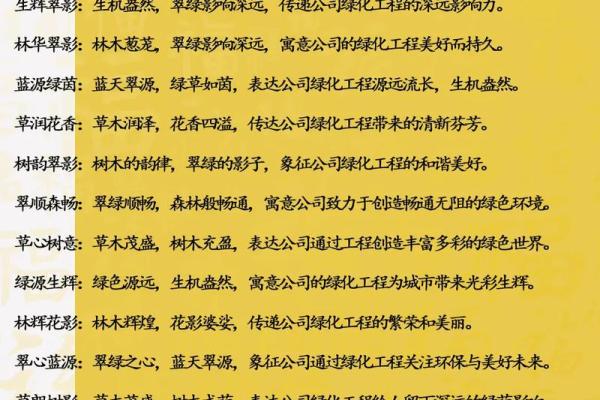 生辉翠影：生机盎然，翠绿影响深远，传递公司绿化工程的深远影响力。
林华翠影：林木葱茏，翠绿影响深远，寓意公司的绿化工程美好而持久。
蓝源绿茵：蓝天翠源，绿草如茵，表达公司绿化工程源远流长，生机盎然。
草润花香：草木润泽，花香四溢，传达公司绿化工程带来的清新芬芳。
树韵翠影：树木的韵律，翠绿的影子，象征公司绿化工程的和谐美好。
翠顺森畅：翠绿顺畅，森林般畅通，寓意公司致力于创造畅通无阻的绿色环境。
草心树意：草木茂盛，树木充盈，表达公司通过工程创造丰富多彩的绿色世界。
绿源生辉：绿色源远，生机盎然，寓意公司的绿化工程为城市带来光彩生辉。
林辉花影：林木辉煌，花影婆娑，传递公司绿化工程的繁荣和美丽。
翠心蓝源：翠绿之心，蓝天翠源，象征公司通过绿化工程关注环保与美好未来。